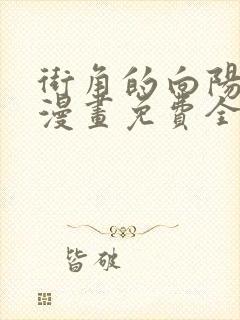 街角的向陽
漫畫免費全
皆破